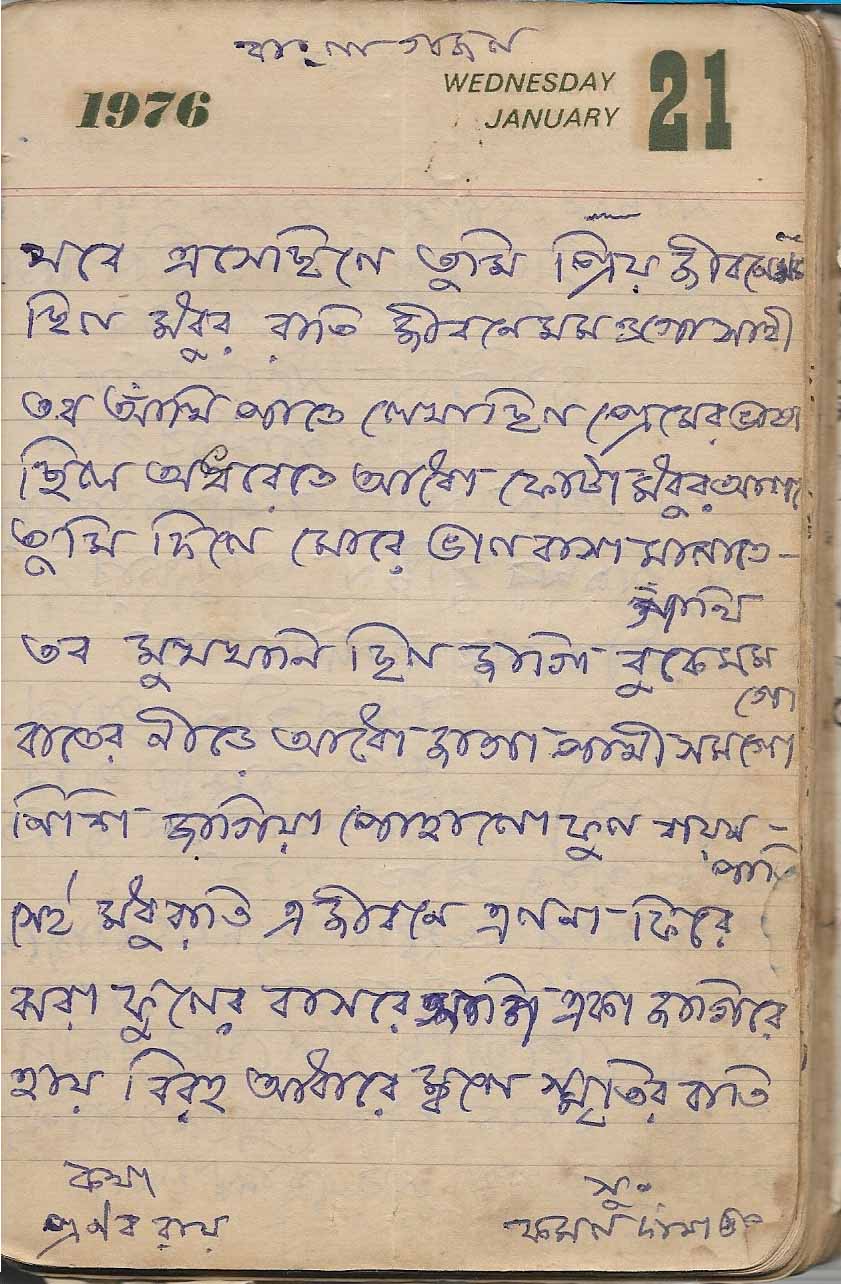 বাংলা গজল
1976
WEDNESDAY
JANUARY
21
যবে এসেছিলে তুমি প্রিয় জীবনে
ছিল মধুর রাতি জীবনে মম ওগো সাথী
তব আঁখি পাতে লেখা ছিল প্রেমের ভাষা
ছিল অধরেতে আধো ফোটা মধুর আশা
তুমি দিলে মোরে ভালবাসা মালাতে
গাঁথি
তব মুখখানি ছিল জাগি বুকে মম
রাতের নীড়ে আধো জাগা পাখী সম গো
গো
নিশি জাগিয়া পোহালো ফুল বাসর
পাতি
সেই মধুরাতি এ জীবনে এলনা ফিরে
ঝরা ফুলের বাসরে আমি একা জাগিরে
হায় বিরহ আধারে জ্বলে স্মৃতির বাতি
কথা
প্রণব রায়
সুর
কমল দাশগুপ্ত